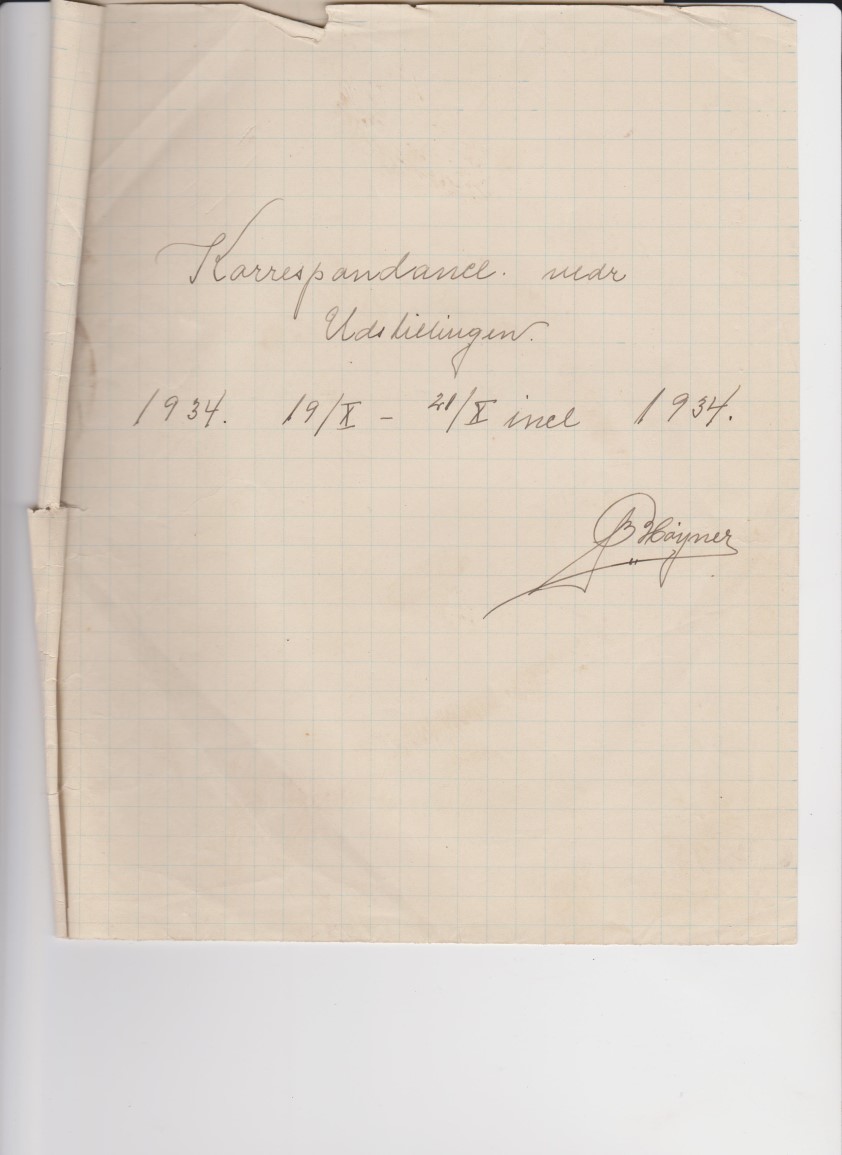 Korrespondance. vedr
Udstillingen.
1934. 19/X - 21/X incl 1934.